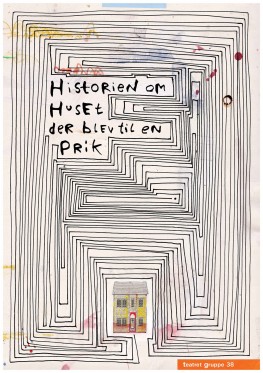 Historien om
Huset
der blev til en
Prik
teatret gruppe 38